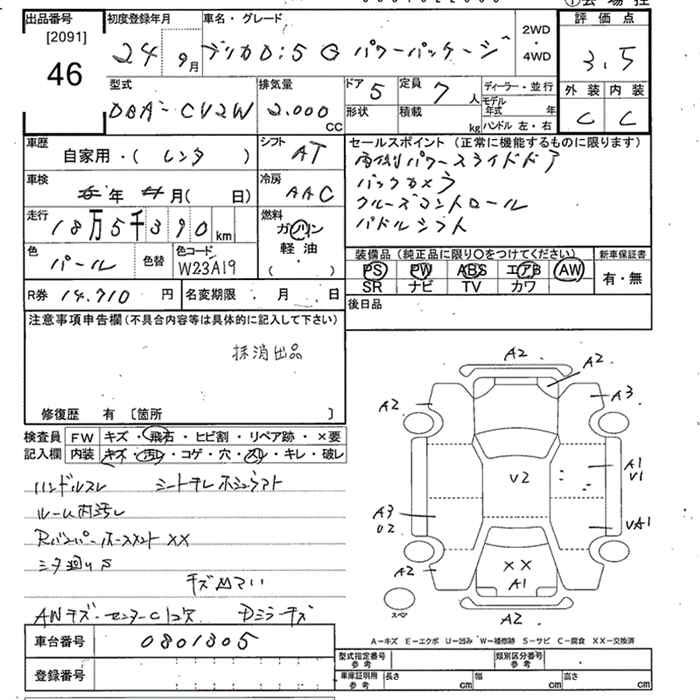 出品番号
[2091]
46
初度登録年月
24 9月
車名・グレード
デリカD:5 G パワーパッケージ
2WD
・
4WD
評価点
3.5
外装 内装
C C
型式
DBA-CV2W
排気量
2.000
CC
ドア 5
形状
定員 7 人
積載 kg
ディーラー・並行
モデル年式 年
ハンドル 左・右
車歴
自家用・( レンタ )
シフト
AT
車検
年 月( 日)
冷房
AAC
走行
18万5千390 km
燃料
ガソリン
・
軽油
・
( )
色
パール
色替
色コード
W23A19
R券 14.710 円
名変期限 . 月 . 日
セールスポイント (正常に機能するものに限ります)
両側パワースライドドア
バックカメラ
クルーズコントロール
パドルシフト
装備品 (純正品に限り○をつけてください)
PS PW ABS エアB AW
SR ナビ TV カワ
新車保証書
有・無
後日品
注意事項申告欄 (不具合内容等は具体的に記入して下さい)
抹消出品
修復歴 有 〔箇所 〕
検査員記入欄
FW キズ・飛石・ヒビ割・リペア跡・×要
内装 キズ・汚レ・コゲ・穴・スレ・キレ・破レ
ハンドルスレ
ルーム内汚レ
××
AWキズ・センターC
Dミラーキズ
車台番号 0801305
登録番号
A2
A2
A2
A3
V2
A1
V1
A3
U2
A2
××
A1
A2
スペア
A-キズ E-エクボ U-凹み W-補修跡 S-サビ C-腐食 XX-交換済
型式指定番号
参考
類別区分番号
参考
車庫証明用
参考
長さ cm
幅 cm
高さ cm